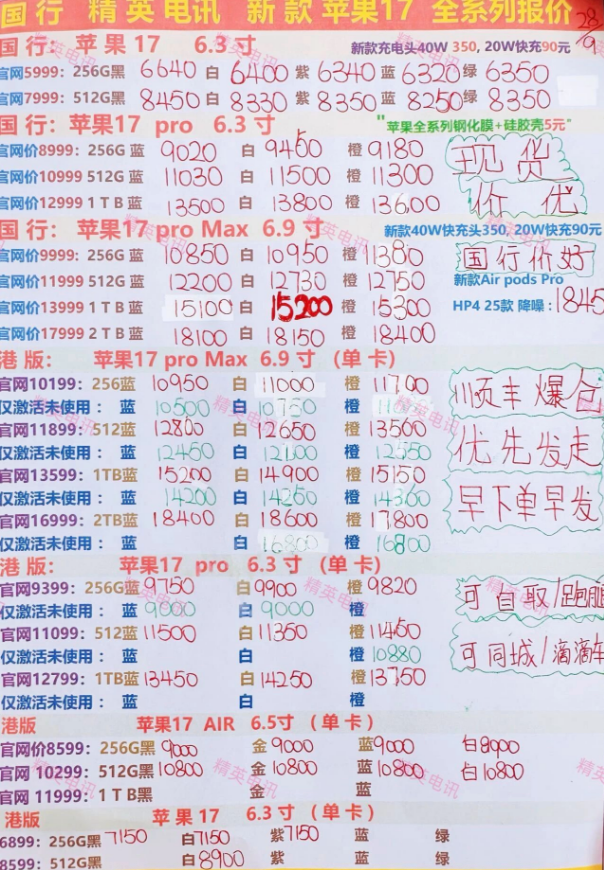 国行 精英电讯 新款苹果17 全系列报价 28/9
国行：苹果17 6.3寸 新款充电头40W 350, 20W快充90元
官网5999：256G黑 6640 白 6400 紫 6340 蓝 6320 绿 6350
官网7999：512G黑 8450 白 8330 紫 8350 蓝 8250 绿 8350
国行：苹果17 pro 6.3寸 "苹果全系列钢化膜+硅胶壳5元"
官网价8999：256G 蓝 9020 白 9450 橙 9180 现货
官网价10999 512G 蓝 11030 白 11500 橙 11300
官网价12999 1TB 蓝 13500 白 13800 橙 13600 价优
国行：苹果17 pro Max 6.9寸 新款40W快充头350, 20W快充90元
官网价9999：256G 蓝 10850 白 10950 橙 11380 国行价好
官网价11999 512G 蓝 12200 白 12730 橙 12750 新款Air pods Pro
官网价13999 1TB 蓝 15100 白 15200 橙 15300 HP4 25款 降噪：1845
官网价17999 2TB 蓝 18100 白 18150 橙 18400
港版： 苹果17 pro Max 6.9寸（单卡）
官网10199：256蓝 10950 白 11000 橙 11700 顺丰爆仓
仅激活未使用： 蓝 10500 白 10750 橙
官网11899：512蓝 12800 白 12650 橙 13500 优先发走
仅激活未使用： 蓝 12450 白 橙 12550
官网13599：1TB蓝 15200 白 14900 橙 15150
仅激活未使用： 蓝 14200 白 14250 橙 14300 早下单早发
官网16999：2TB蓝 18400 白 18600 橙 17800
仅激活未使用： 蓝 白 16800 橙 16800
港版： 苹果17 pro 6.3寸（单卡）
官网9399：256G蓝 9750 白 9900 橙 9820 可自取/跑腿
仅激活未使用： 蓝 9000 白 9000 橙
官网11099：512蓝 11500 白 11350 橙 11450
仅激活未使用： 蓝 白 橙 10880 可同城/滴滴车
官网12799：1TB蓝 13450 白 14250 橙 13750
仅激活未使用： 蓝 白 橙
港版 苹果17 AIR 6.5寸（单卡）
官网价8599：256G黑 9000 金 9000 蓝 9000 白 8900
官网 10299：512G黑 10800 金 10800 蓝 10800 白 10800
官网 11999：1TB黑 金 蓝
港版 苹果17 6.3寸（单卡）
6899：256G黑 7150 白 7150 紫 7150 蓝 绿
8599：512G黑 白 8900 紫 蓝 绿